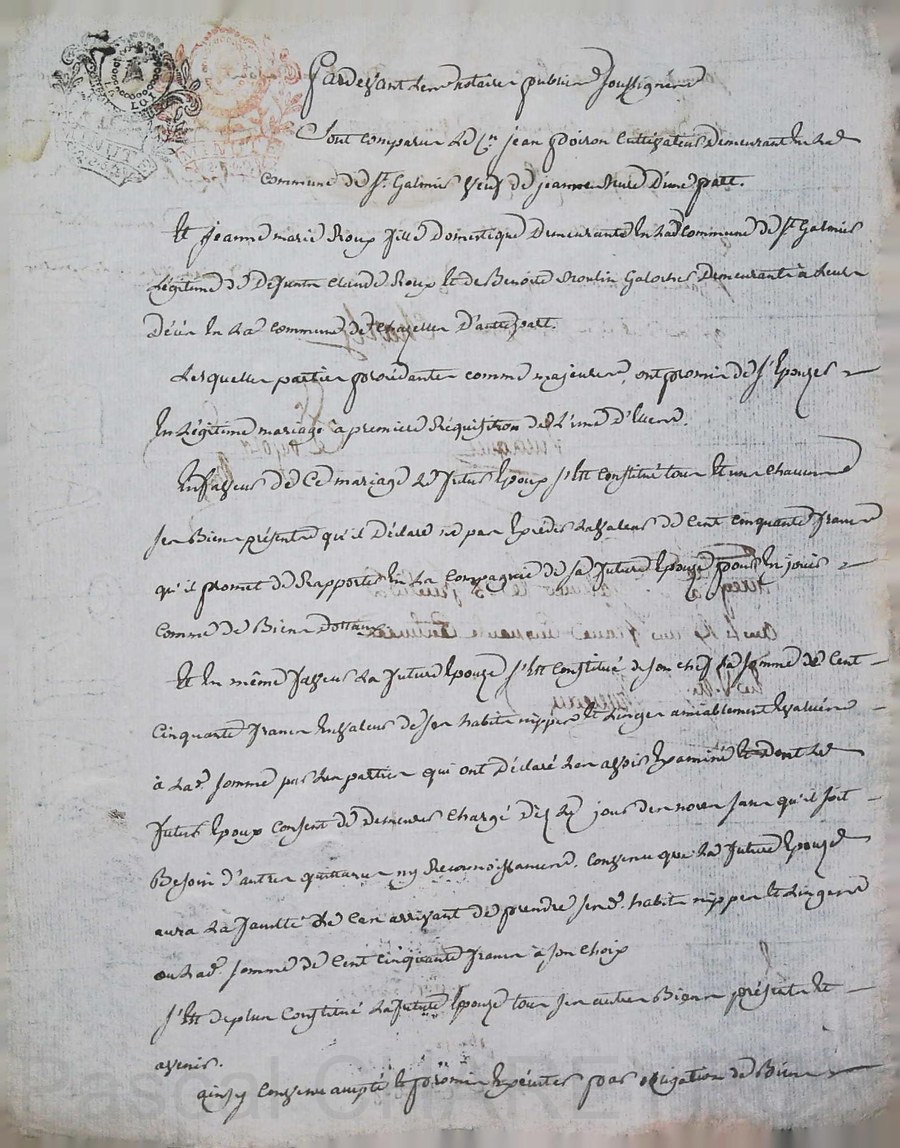 LOI
MINUTE
Pardevant Les notaires publics soussignés
Sont comparus Le Cn. jean Poiron Cultivateur demeurant en La
Commune de St. Galmier veuf de jeanne d'une part.
Et jeanne marie Roux fille Domestique Demeurante en Lad. commune de St Galmier
Légitime de Defunts Claude Roux Et de Benoite Moulin Demeurants à Leur
Décès En La Commune de Chazelles D'autre part.
Lesquelles parties procédantes comme majeures, ont promis de s'Epouser
En Légitime mariage à premiere Réquisition de L'une d'Elles.
En faveur de Ce mariage Le futur Epoux s'Est Constitué tous Et un Chacuns
ses Biens présents qu'il Déclare ne pas Exceder La valeur de Cent Cinquante francs
qu'il promet de Rapporter En La Compagnie de sa future Epouze pour En jouir
Comme de Biens Dottaux.
Et En même faveur La future Epouze s'Est Constitué de son chef La somme de Cent
Cinquante francs En valeur de ses habits nippes Et Linges amiablement Evalués
à Lad. somme par Les parties qui ont Déclaré Les avoir Examiné Et dont Le
futur Epoux Consent de Demeurer Chargé Dès Le jour des noces sans qu'il soit
Besoin d'autres quittances ny Reconnoissances. Convenu que La future Epouze
aura La faculté Le Cas arrivant de prendre sesd. habits nippes Et Linges
ou Lad. somme de Cent Cinquante francs à son choix
s'Est deplus Constitué La future Epouze tous ses autres Biens présents Et
avenir.
ainsy Convenu accepté Et promis Exécuter par obligation de Biens